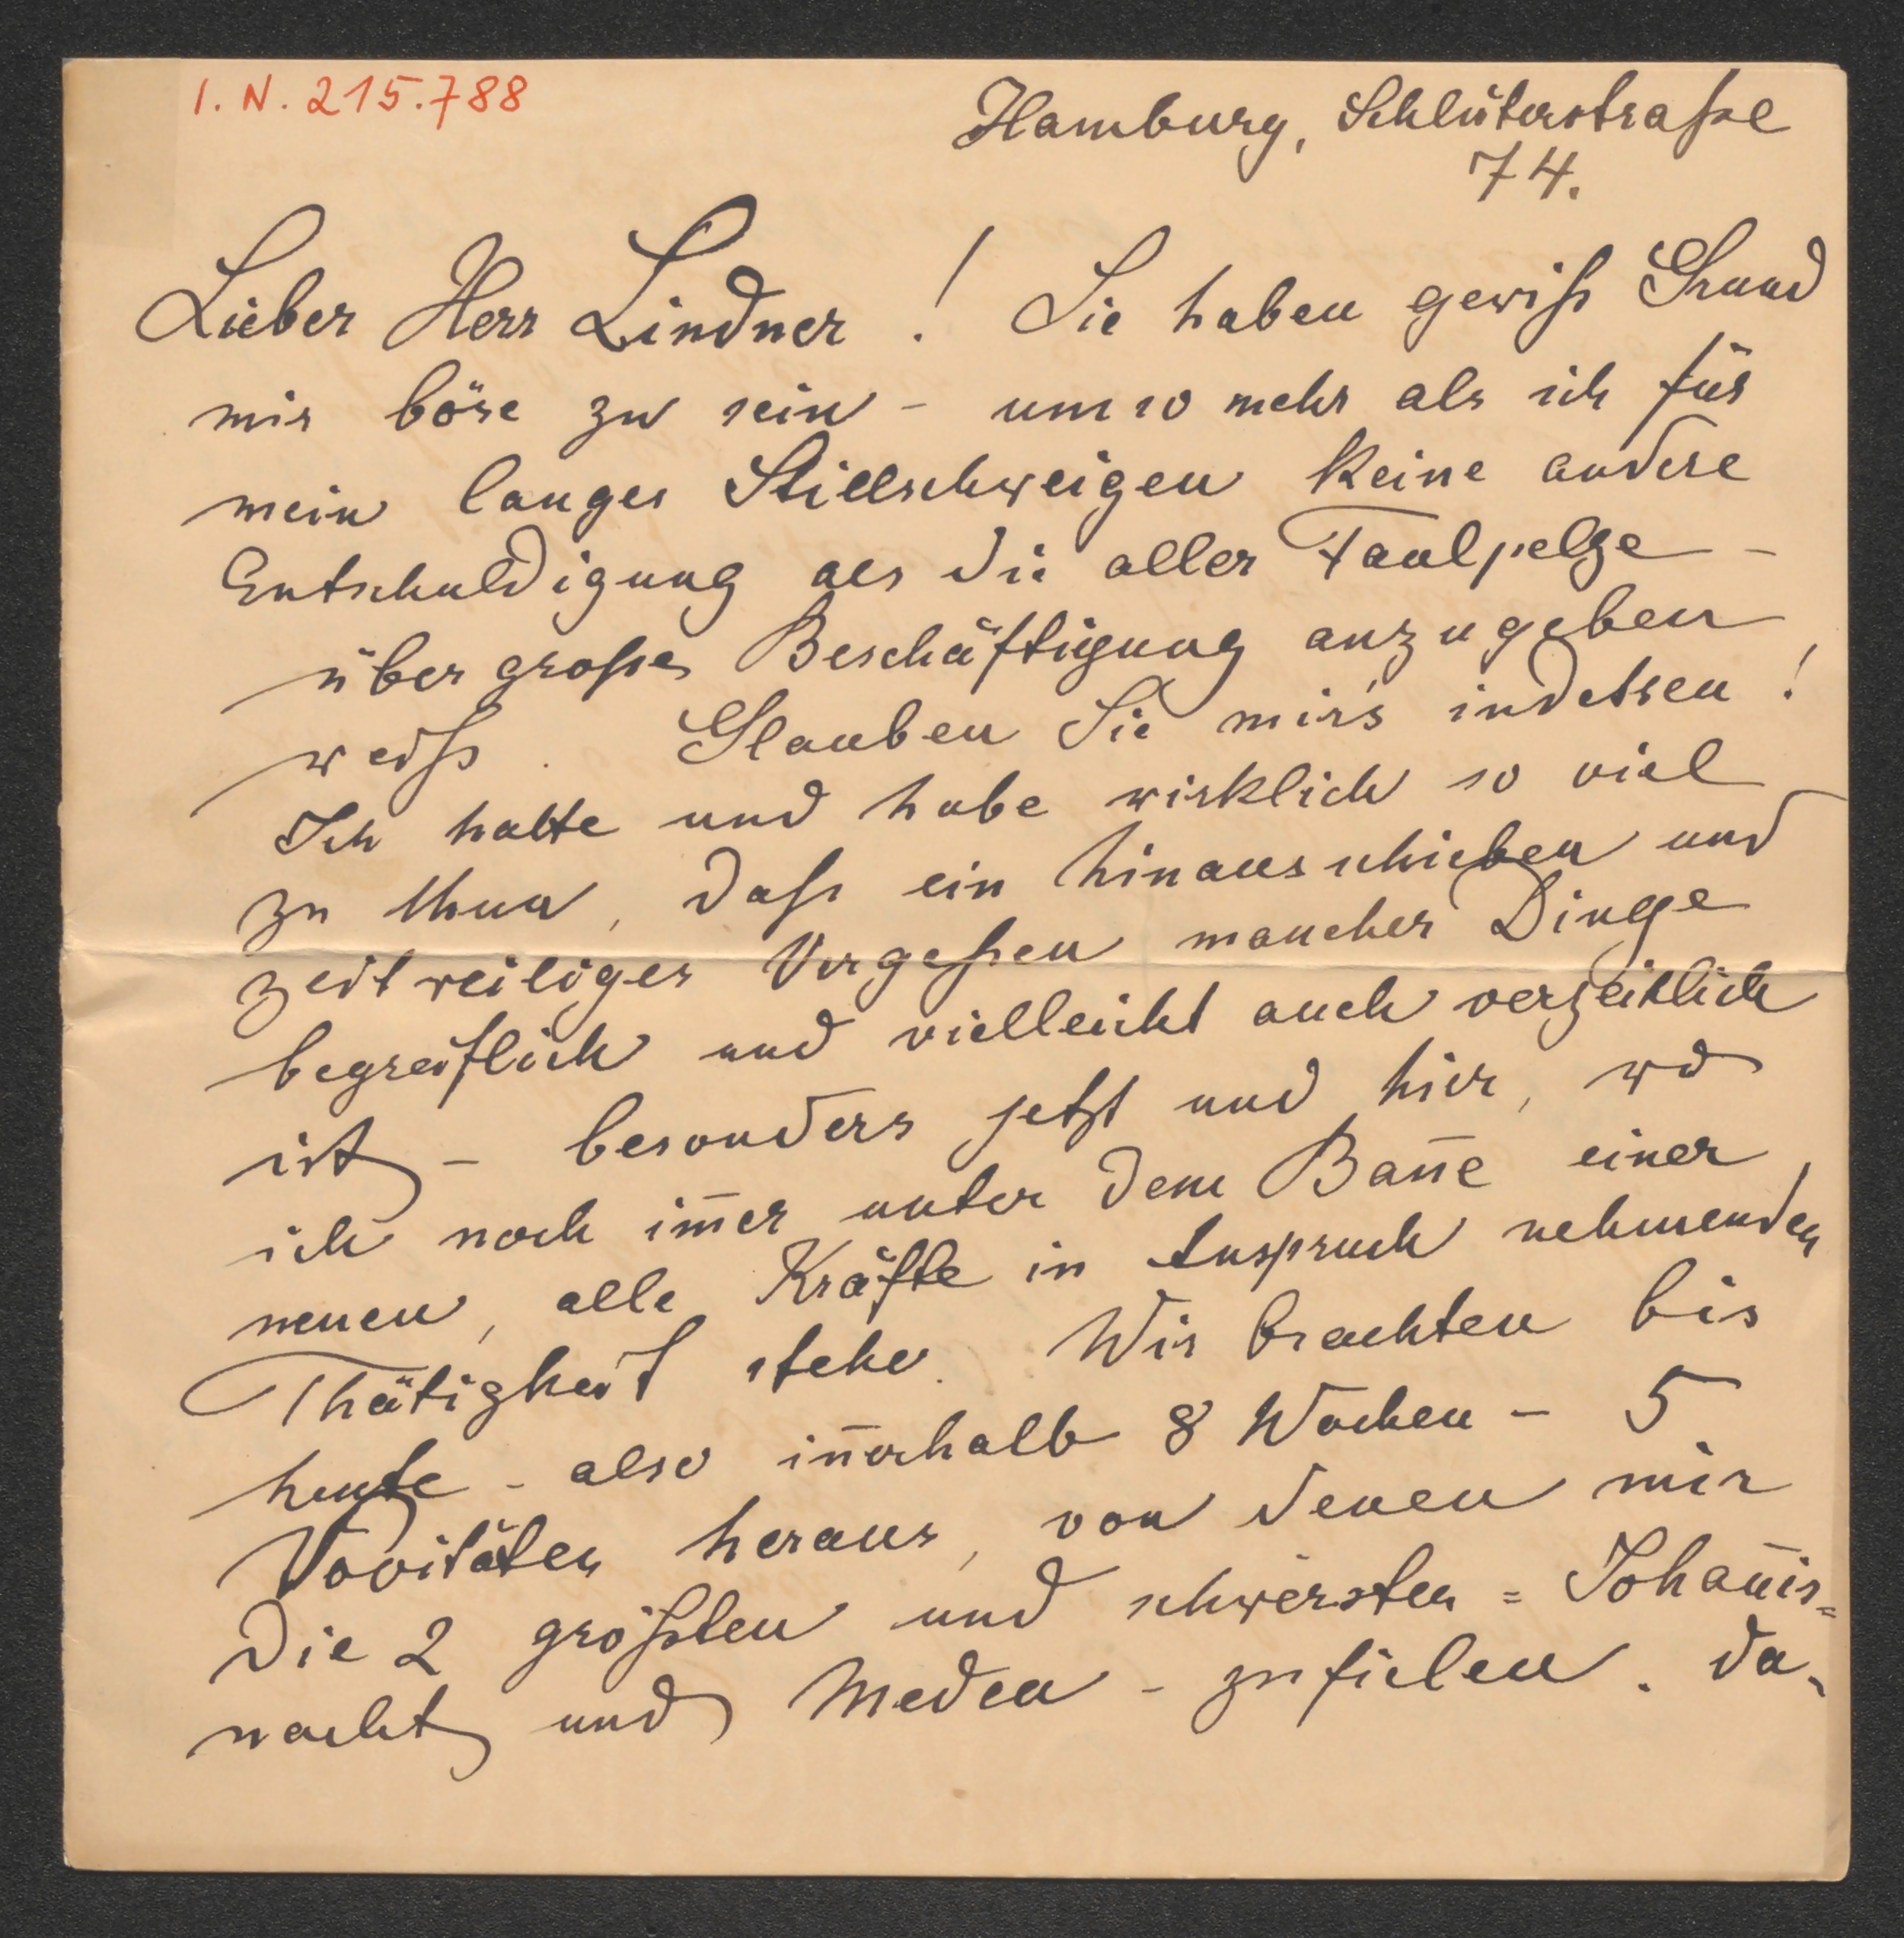 I. N. 215.788
Hamburg, Schlüterstraße
74.
Lieber Herr Lindner! Sie haben gewiß Grund
mir böse zu sein - umso mehr als ich für
mein langes Stillschweigen keine andere
Entschuldigung als die aller Faulpelze -
übergroße Beschäftigung anzugeben
weiß. Glauben Sie mir's indessen!
Ich hatte und habe wirklich so viel
zu thun, daß ein hinausschieben und
zeitweiliges Vergeßen mancher Dinge
begreiflich und vielleicht auch verzeihlich
ist - besonders jetzt und hier, wo
ich noch im̄er unter dem Ban̄e einer
neuen, alle Kräfte in Anspruch nehmenden
Thätigkeit stehe. Wir brachten bis
heute - also in̄erhalb 8 Wochen - 5
Novitäten heraus, von denen mir
die 2 größten und schwersten = Johan̄is=
nacht und Medea - zufielen. Da-